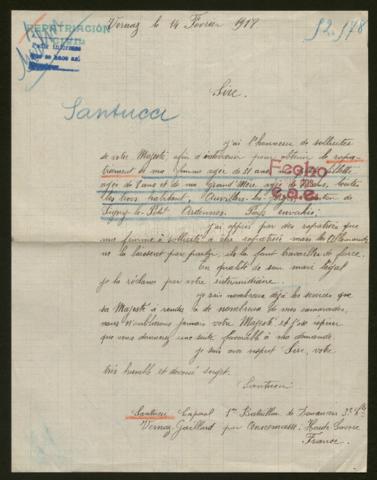 REPATRIACIÓN
Vernaz le 14 Février 1918
52.178
Pedir informes
que se hace así
Sire.
Santucci
j'ai l'honneur de solliciter
de votre Majesté afin d'intervenir pour obtenir le rapa-
triement de ma femme agée de 31 ans
agée de 8 ans et de ma Grand Mère agée de
les trois habitant,
Signy-le-Petit Ardennes. Pays envahis.
j'ai appris par des rapatriés que
ma femme à sollicité à être rapatriée mais les Allemands
ne la laissent pas partir, ils la font travailler de force.
En qualité de son mari légal
je la réclame par votre intermédiaire.
je sais nombreux déjà les services que
sa Majesté à rendu à de nombreux de mes camarades,
nous n'oublierons jamais votre Majesté et j'ose espérer
que vous donnerez une suite favorable à ma demande.
je suis avec respect Sire, votre
très humble et dévoué sujet.
Santucci
Fecho
e.a.e.
Santucci Caporal 1er Bataillon de Douaniers 3e Cie
Vernaz Gaillard par Annemasse. Haute Savoie
France.